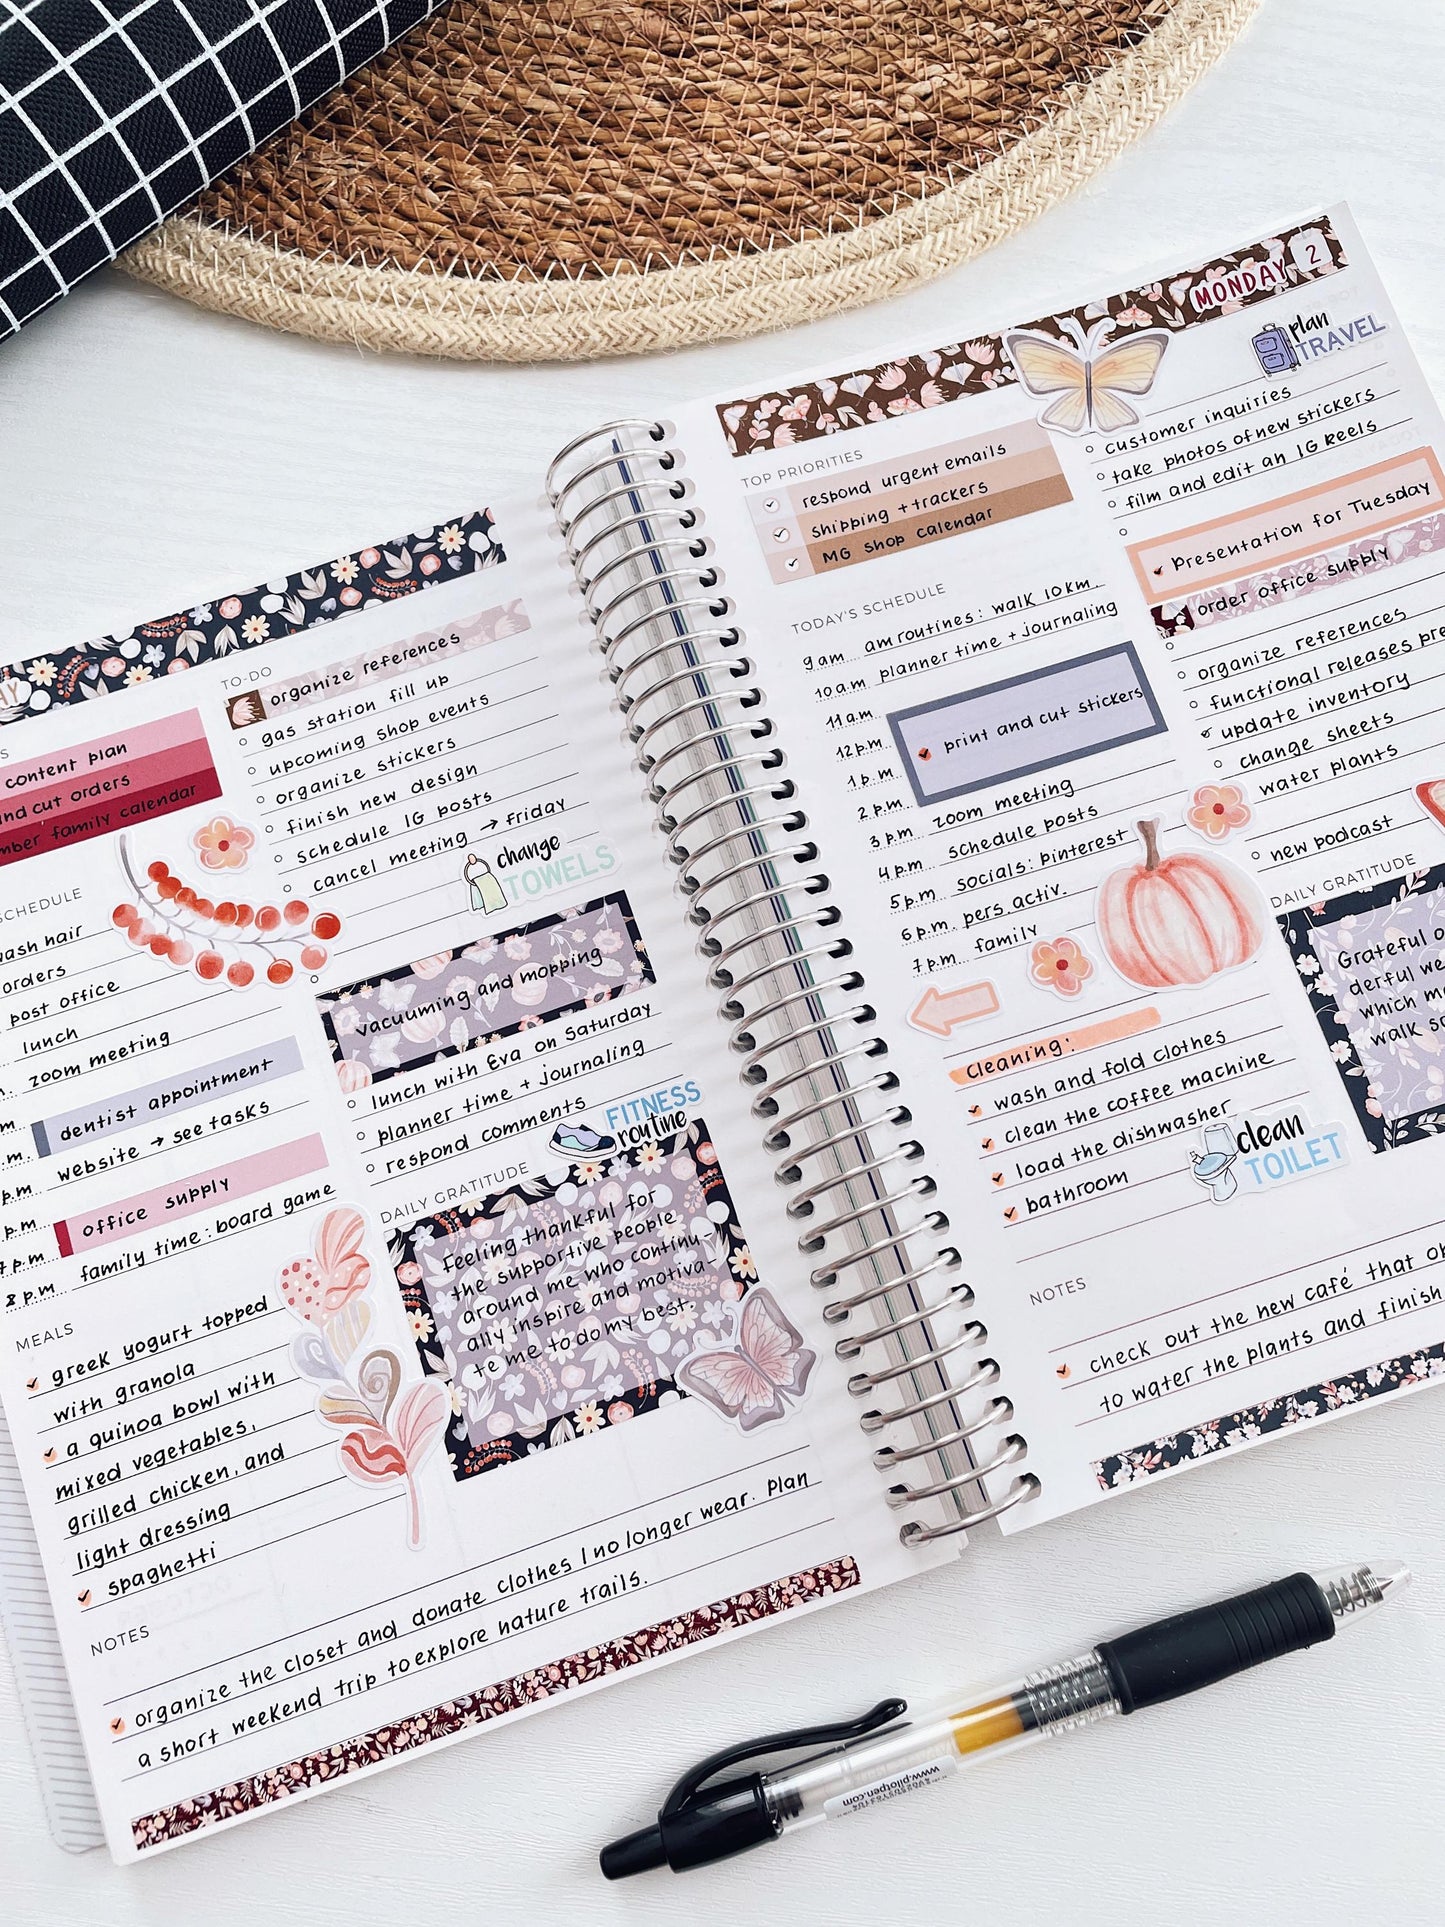 TO-DO
organize references
gas station fill up
upcoming shop events
organize stickers
finish new design
schedule IG posts
cancel meeting → friday
change
TOWELS
content plan
cut orders
family calendar
SCHEDULE
hair
orders
post office
lunch
zoom meeting
dentist appointment
website → see tasks
office supply
family time: board game
8 p.m.
vacuuming and mopping
lunch with Eva on Saturday
planner time + journaling
respond comments
FITNESS
routine
DAILY GRATITUDE
Feeling thankful for
the supportive people
around me who continu-
ally inspire and motiva-
te me to do my best.
MEALS
greek yogurt topped
with granola
a quinoa bowl with
mixed vegetables,
grilled chicken, and
light dressing
spaghetti
NOTES
organize the closet and donate clothes I no longer wear. Plan
a short weekend trip to explore nature trails.
MONDAY 2
plan
TRAVEL
TOP PRIORITIES
respond urgent emails
shipping + trackers
MG shop calendar
TODAY'S SCHEDULE
9 am am routines: walk 10km.
10 a.m planner time + journaling
11 a.m
12 p.m print and cut stickers
1 p.m
2 p.m
3 p.m zoom meeting
4 p.m schedule posts
5 p.m socials: pinterest
6 p.m. pers. activ.
7 p.m family
Cleaning:
wash and fold clothes
clean the coffee machine
load the dishwasher
bathroom
clean
TOILET
customer inquiries
take photos of new stickers
film and edit an IG Reels
Presentation for Tuesday
order office supply
organize references
functional releases
update inventory
change sheets
water plants
new podcast
DAILY GRATITUDE
Grateful
derful
which
walk
NOTES
check out the new café that
to water the plants and finish
www.pilotpen.com